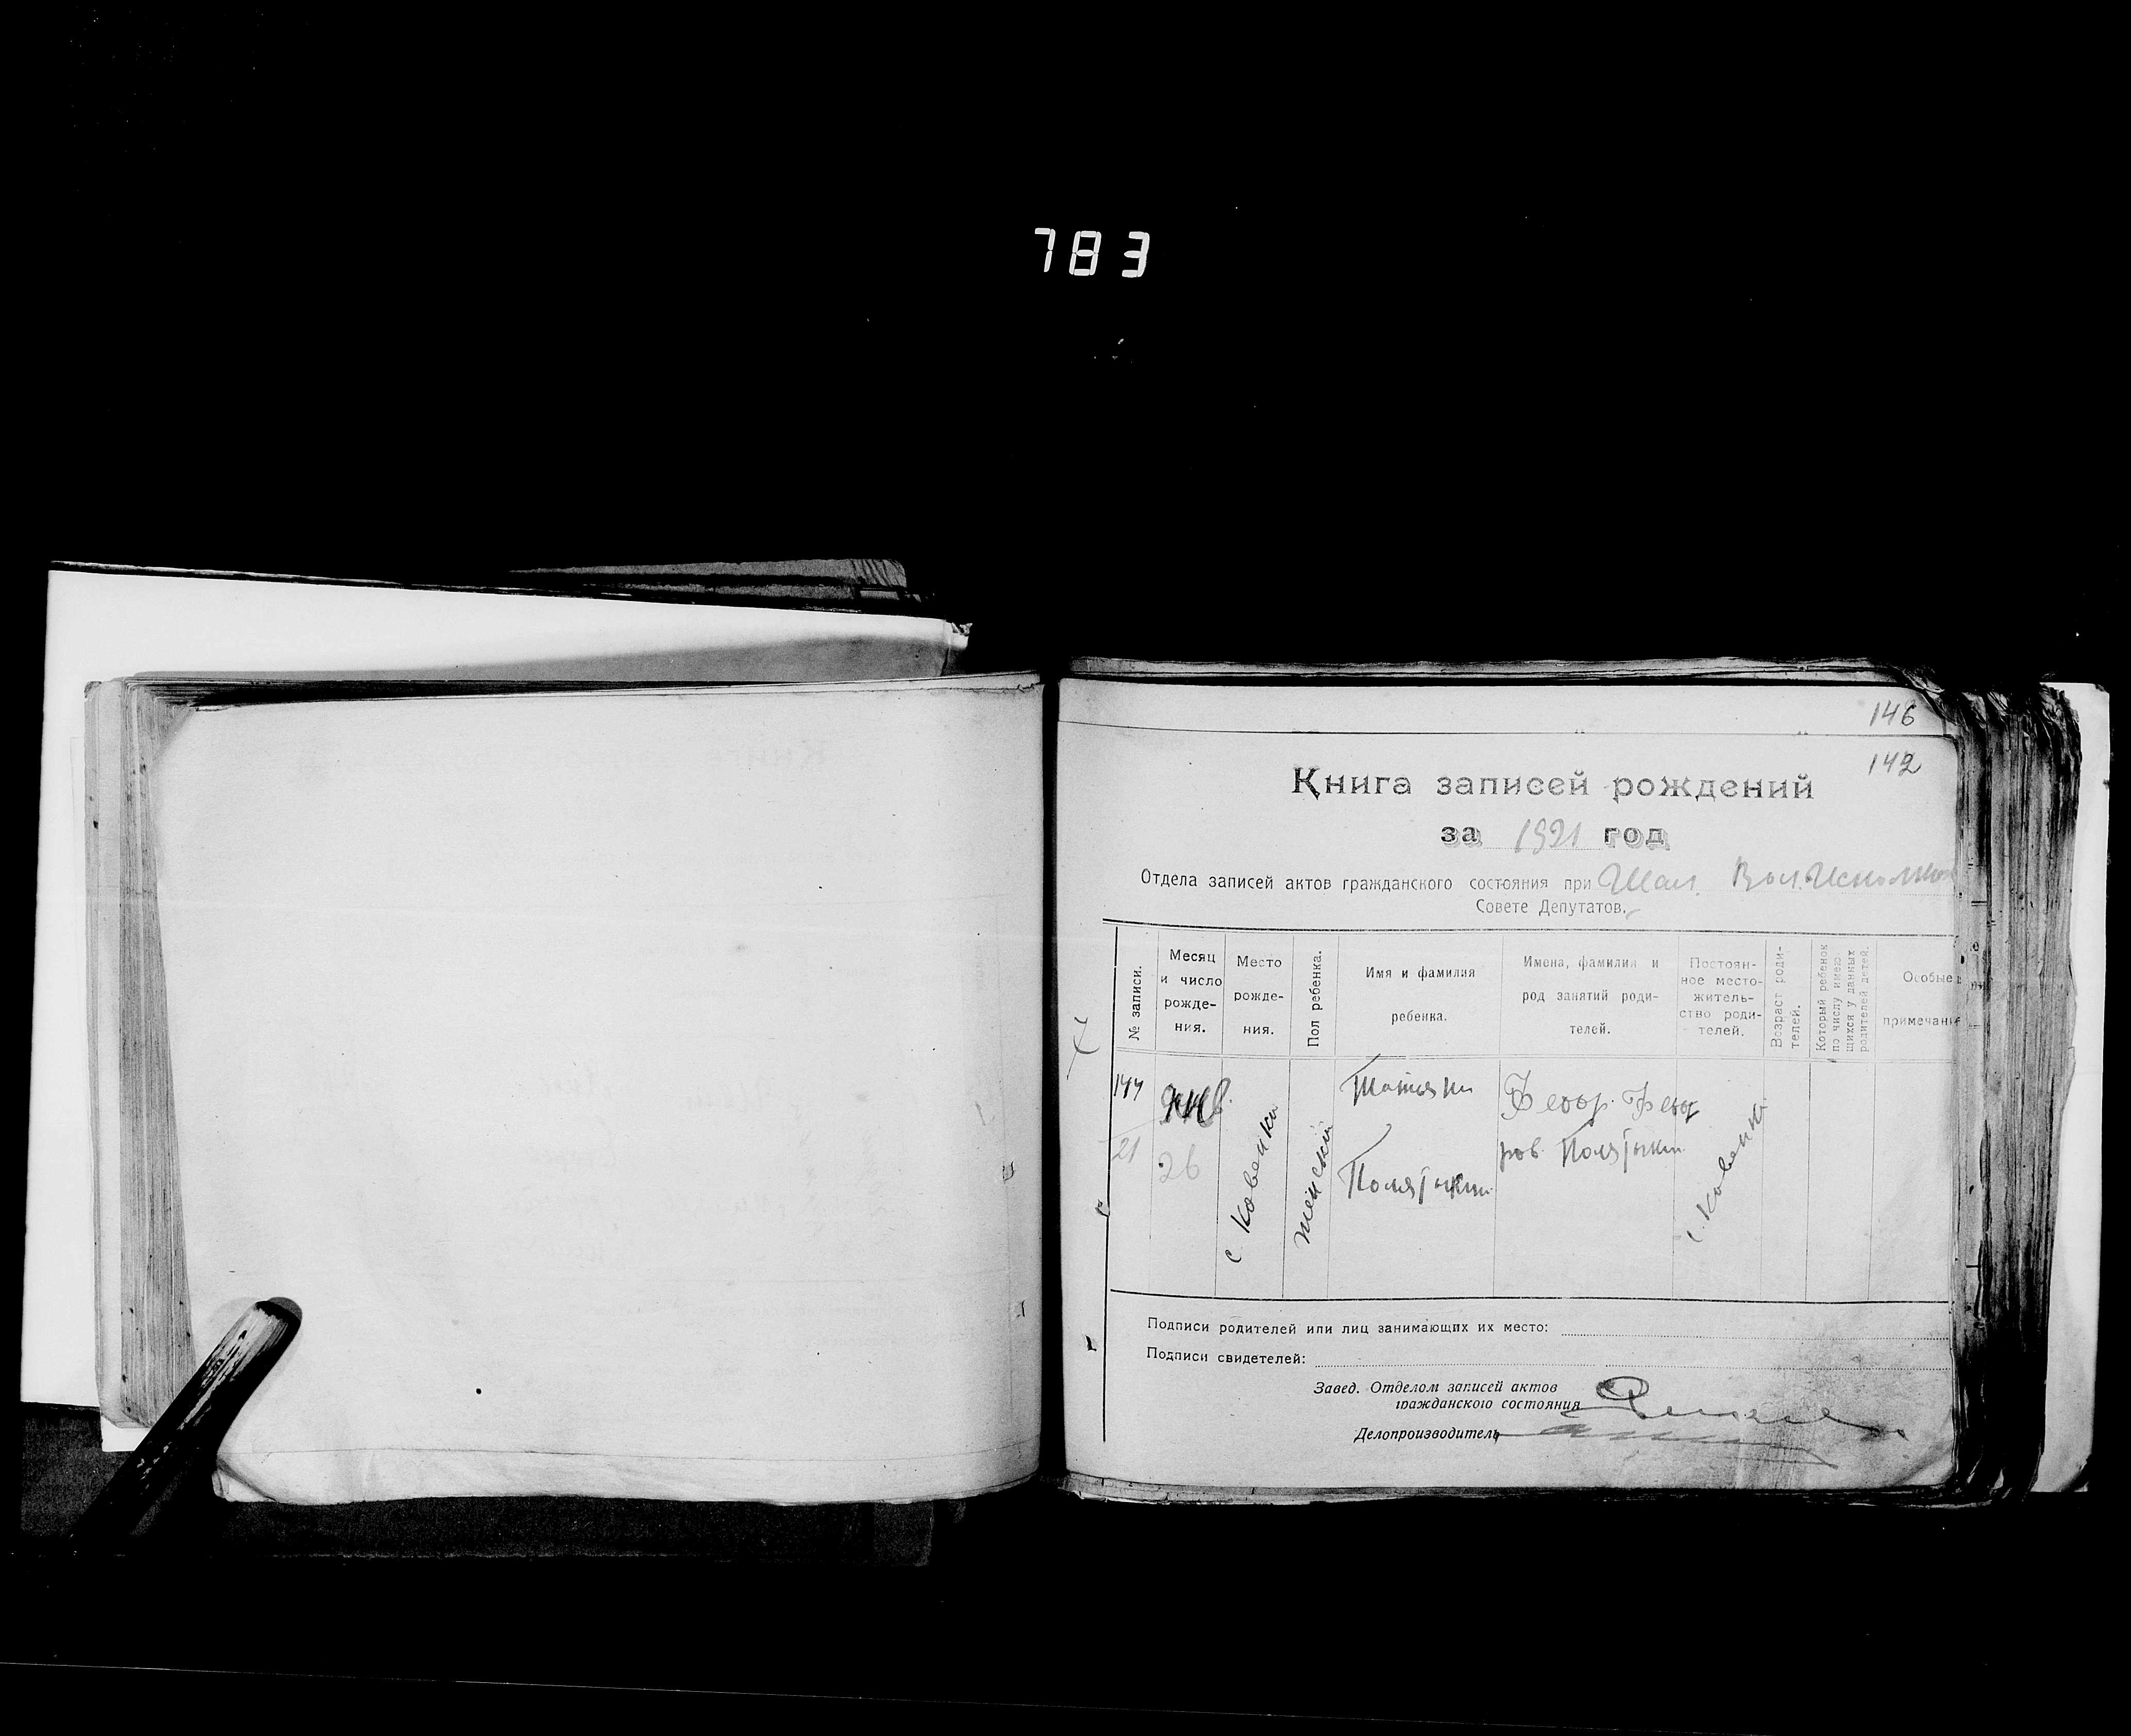 783
146
142
Книга записей рождений
за 1921 год
Отдела записей актов гражданского состояния при Шал. Вол. Исполком
Совете Депутатов.
№ записи.
Месяц
и число
рожде-
ния.
Место
рожде-
ния.
Пол ребенка.
Имя и фамилия
ребенка.
Имена, фамилии и
род занятий роди-
телей.
Постоян-
ное место-
житель-
ство роди-
телей.
Возраст роди-
телей.
Который ребенок
по числу имею-
щихся у данных
родителей детей.
Особые
примечани
144
21
янв.
26
с Ковенки
женский
Татьяни
Федор. Федо
ров.
с. Ковенки
Подписи родителей или лиц занимающих их место:
Подписи свидетелей:
Завед. Отделом записей актов
гражданского состояния
Делопроизводитель